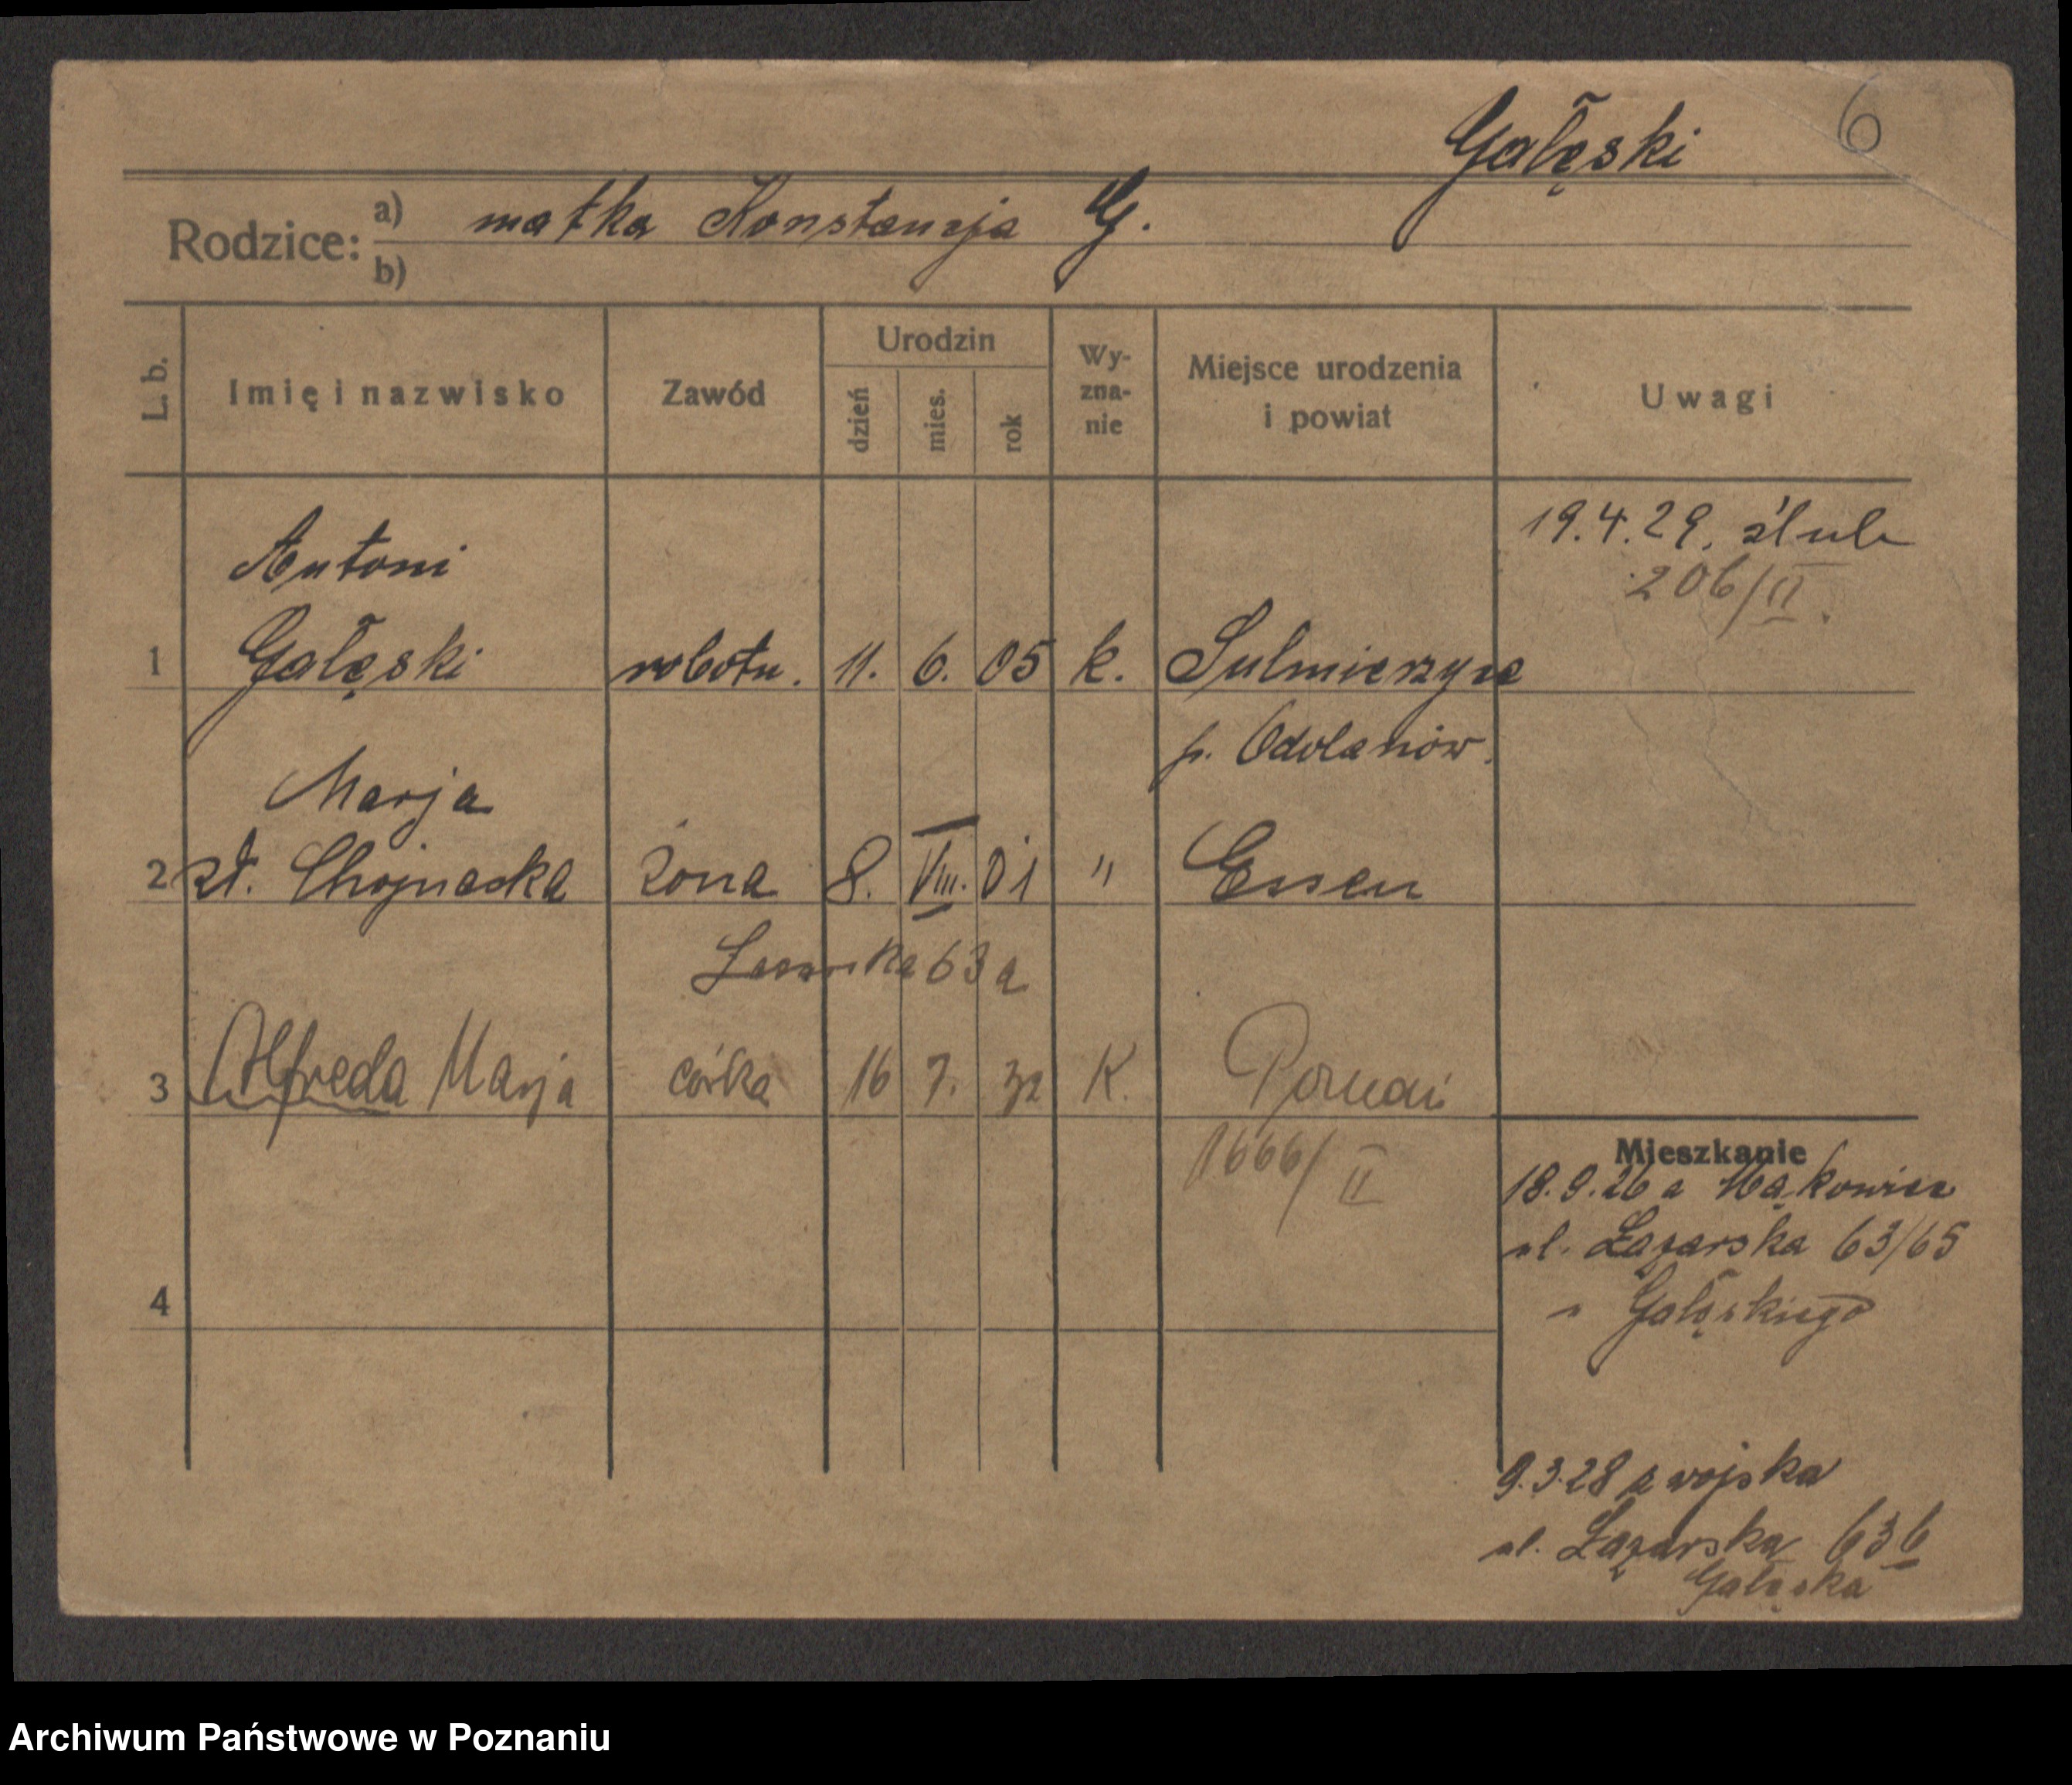 Gałęski
6
Rodzice:
a) matka Konstancja G.
b)
L. b.
Imię i nazwisko
Zawód
Urodzin
dzień
mies.
rok
Wy-
zna-
nie
Miejsce urodzenia
i powiat
Uwagi
19.4.29. ślub
206/II.
Antoni
1 Gałęski robotn. 11. 6. 05 k. Sulmierzyce
p. Odolanów.
Marja
2 zd. Chojnacka żona 8. VIII. 01 " Essen
63a
3 Alfreda Marja córka 16 7. 32 K. Poznań
1666/II
4
Mieszkanie
18.9.26 z
ul. Łazarska 63/65
u Gałęskiego
9.3.28 z wojska
ul. Łazarska 63b
Gałęska
Archiwum Państwowe w Poznaniu